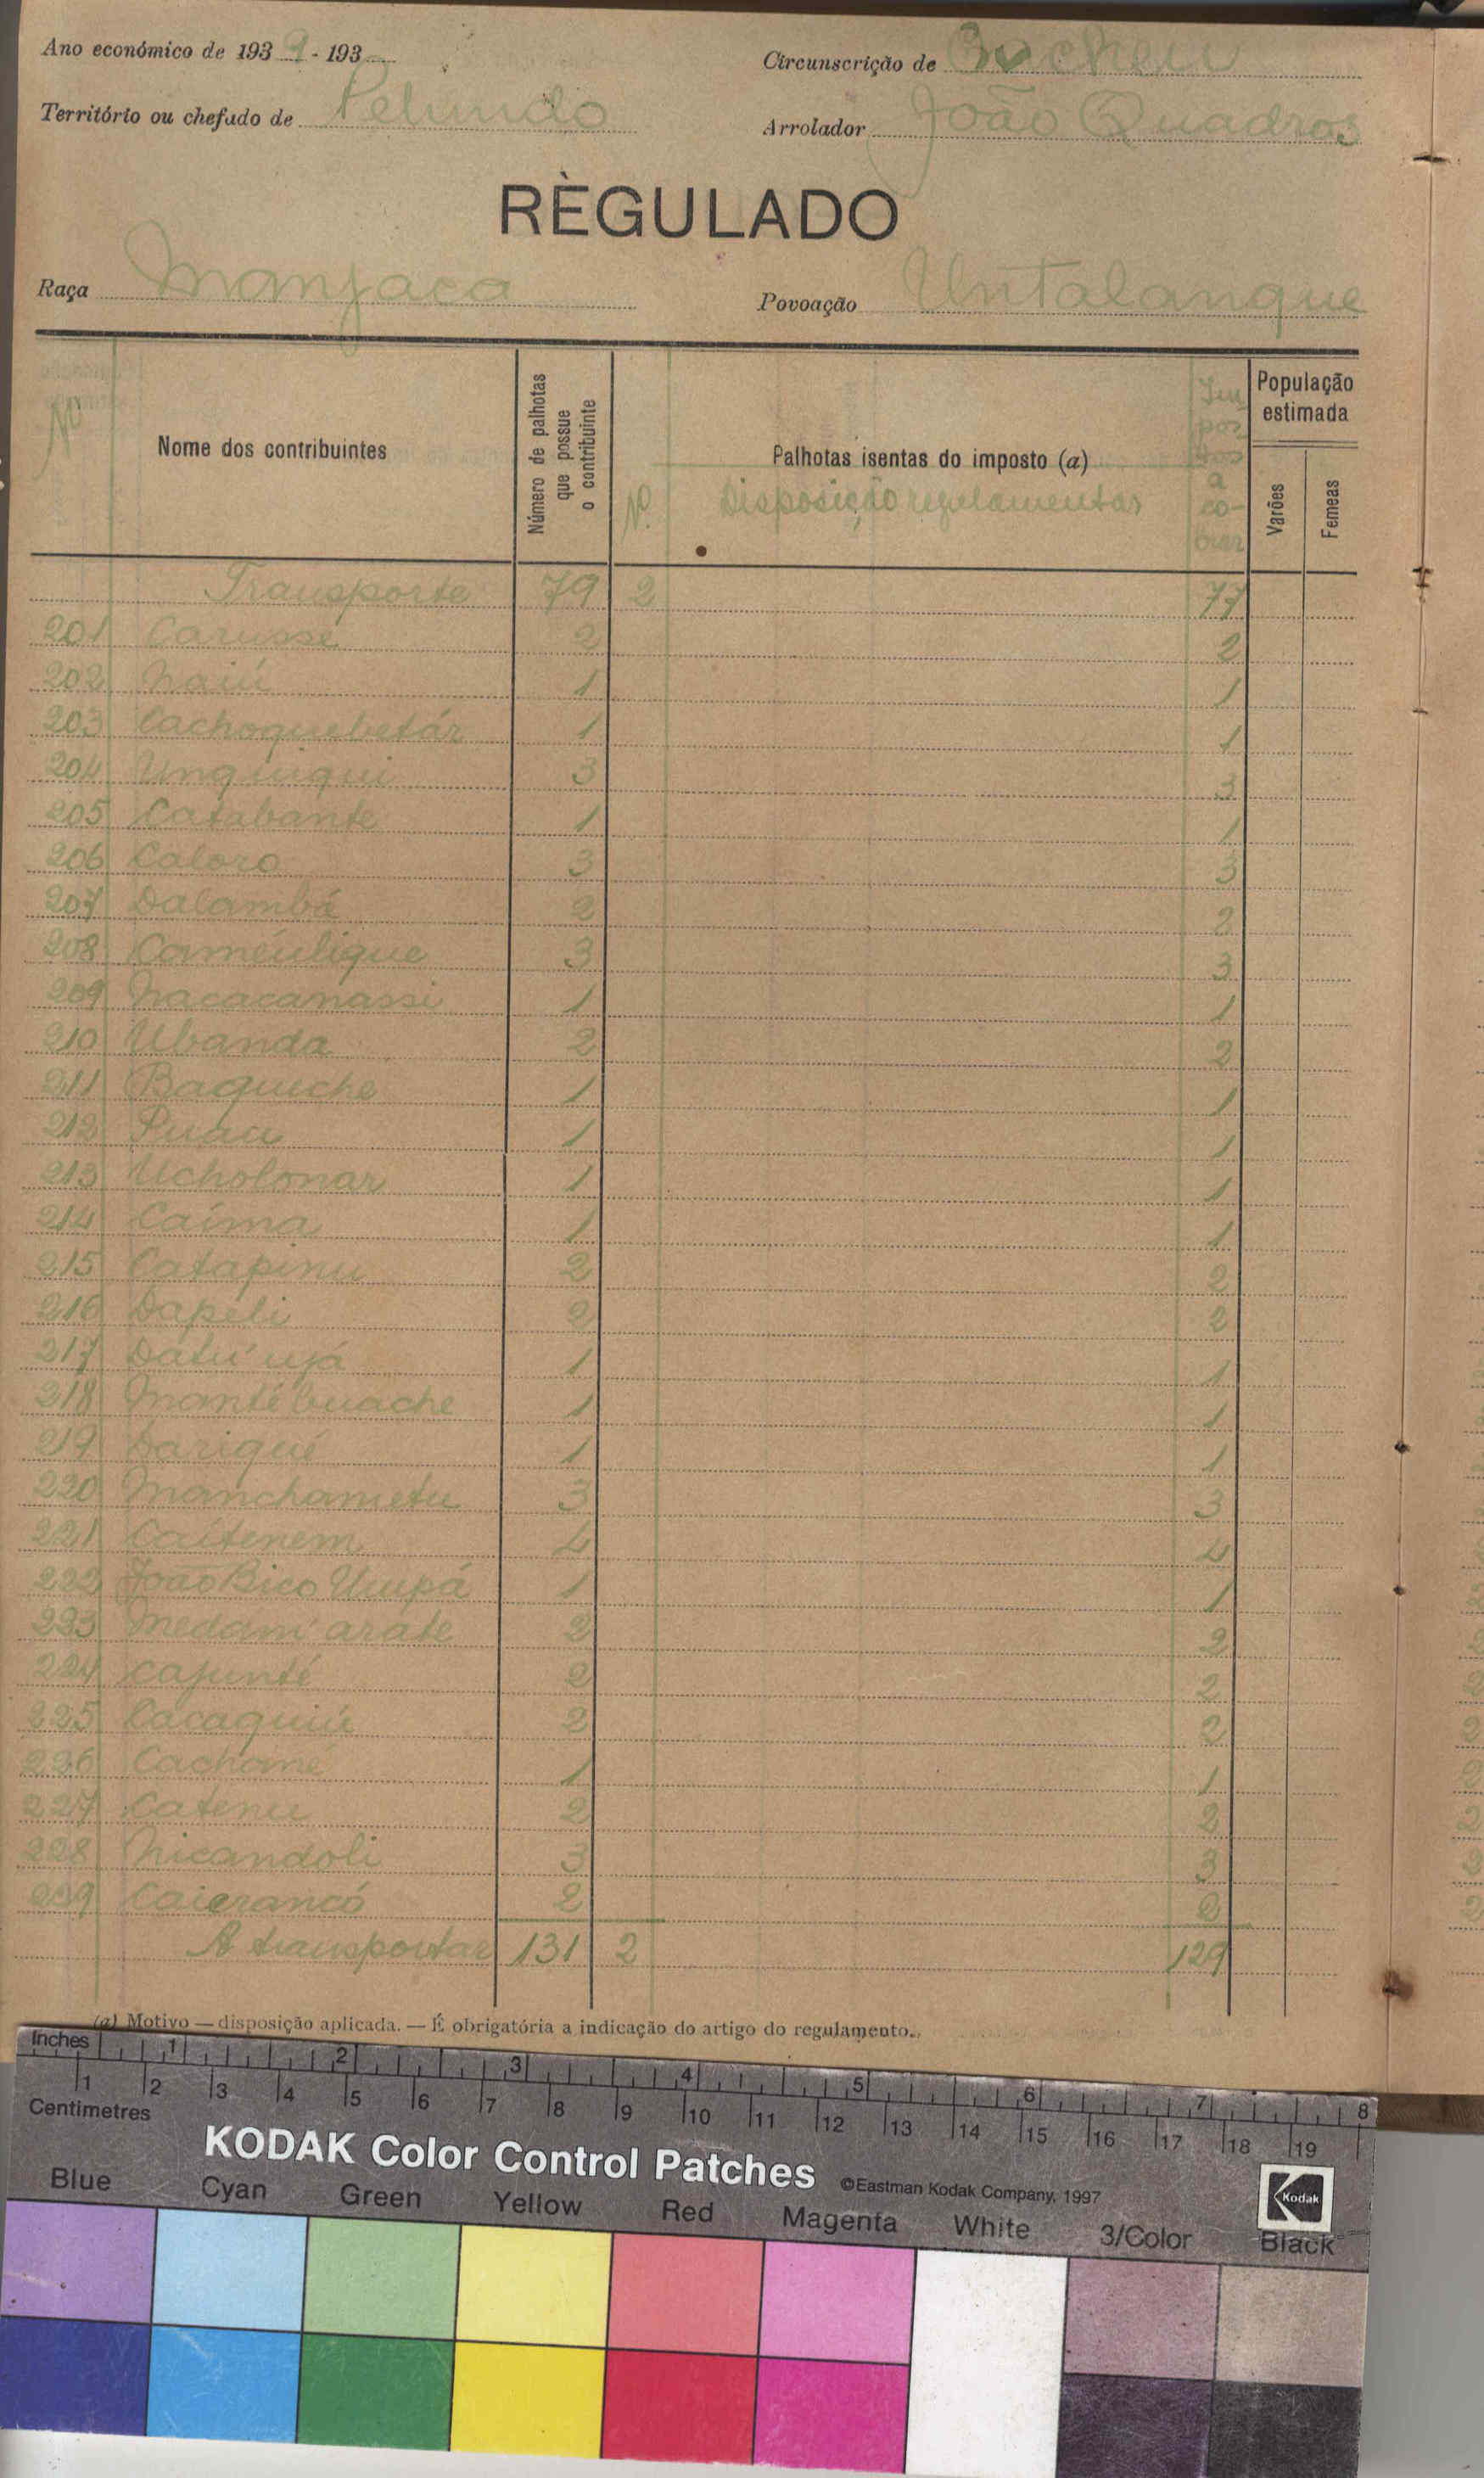 Ano económico de 1939-193
Circunscrição de Bocheu
Território ou chefado de Pelundo
Arrolador João Quadros
RÈGULADO
Raça Manjaca
Povoação Untalanque
Nº
Nome dos contribuintes
Número de palhotas que possue o contribuinte
Nº
Palhotas isentas do imposto (a)
Disposição regulamentar
Im pos tos a co- brar
População estimada
Varões
Femeas
Transporte 79 2 77
201 Carussé 2 2
202 Naiú 1 1
203 Cachoquebetár 1 1
204 Unguiqui 3 3
205 Catabante 1 1
206 Caloro 3 3
207 Dalambá 2 2
208 Caméulique 3 3
209 Nacacanassi 1 1
210 Ubanda 2 2
211 Baqueche 1 1
212 Puau 1 1
213 Ucholonar 1 1
214 Caíma 1 1
215 Catapinu 2 2
216 Dapeli 2 2
217 Datú ujá 1 1
218 Mantébuache 1 1
219 Dariqué 1 1
220 Manchametu 3 3
221 Caítenem 4 4
222 João Bico Umpá 1 1
223 Medam arate 2 2
224 Cajunté 2 2
225 Cacaquiú 2 2
226 Cachomé 1 1
227 Catenu 2 2
228 Nicandoli 3 3
229 Caierancó 2 2
A transportar 131 2 129
(a) Motivo — disposição aplicada. — É obrigatória a indicação do artigo do regulamento.
Inches 1 2 3 4 5 6 7 8
1 2 3 4 5 6 7 8 9 10 11 12 13 14 15 16 17 18 19
Centimetres
KODAK Color Control Patches ©Eastman Kodak Company, 1997
Kodak
Blue Cyan Green Yellow Red Magenta White 3/Color Black